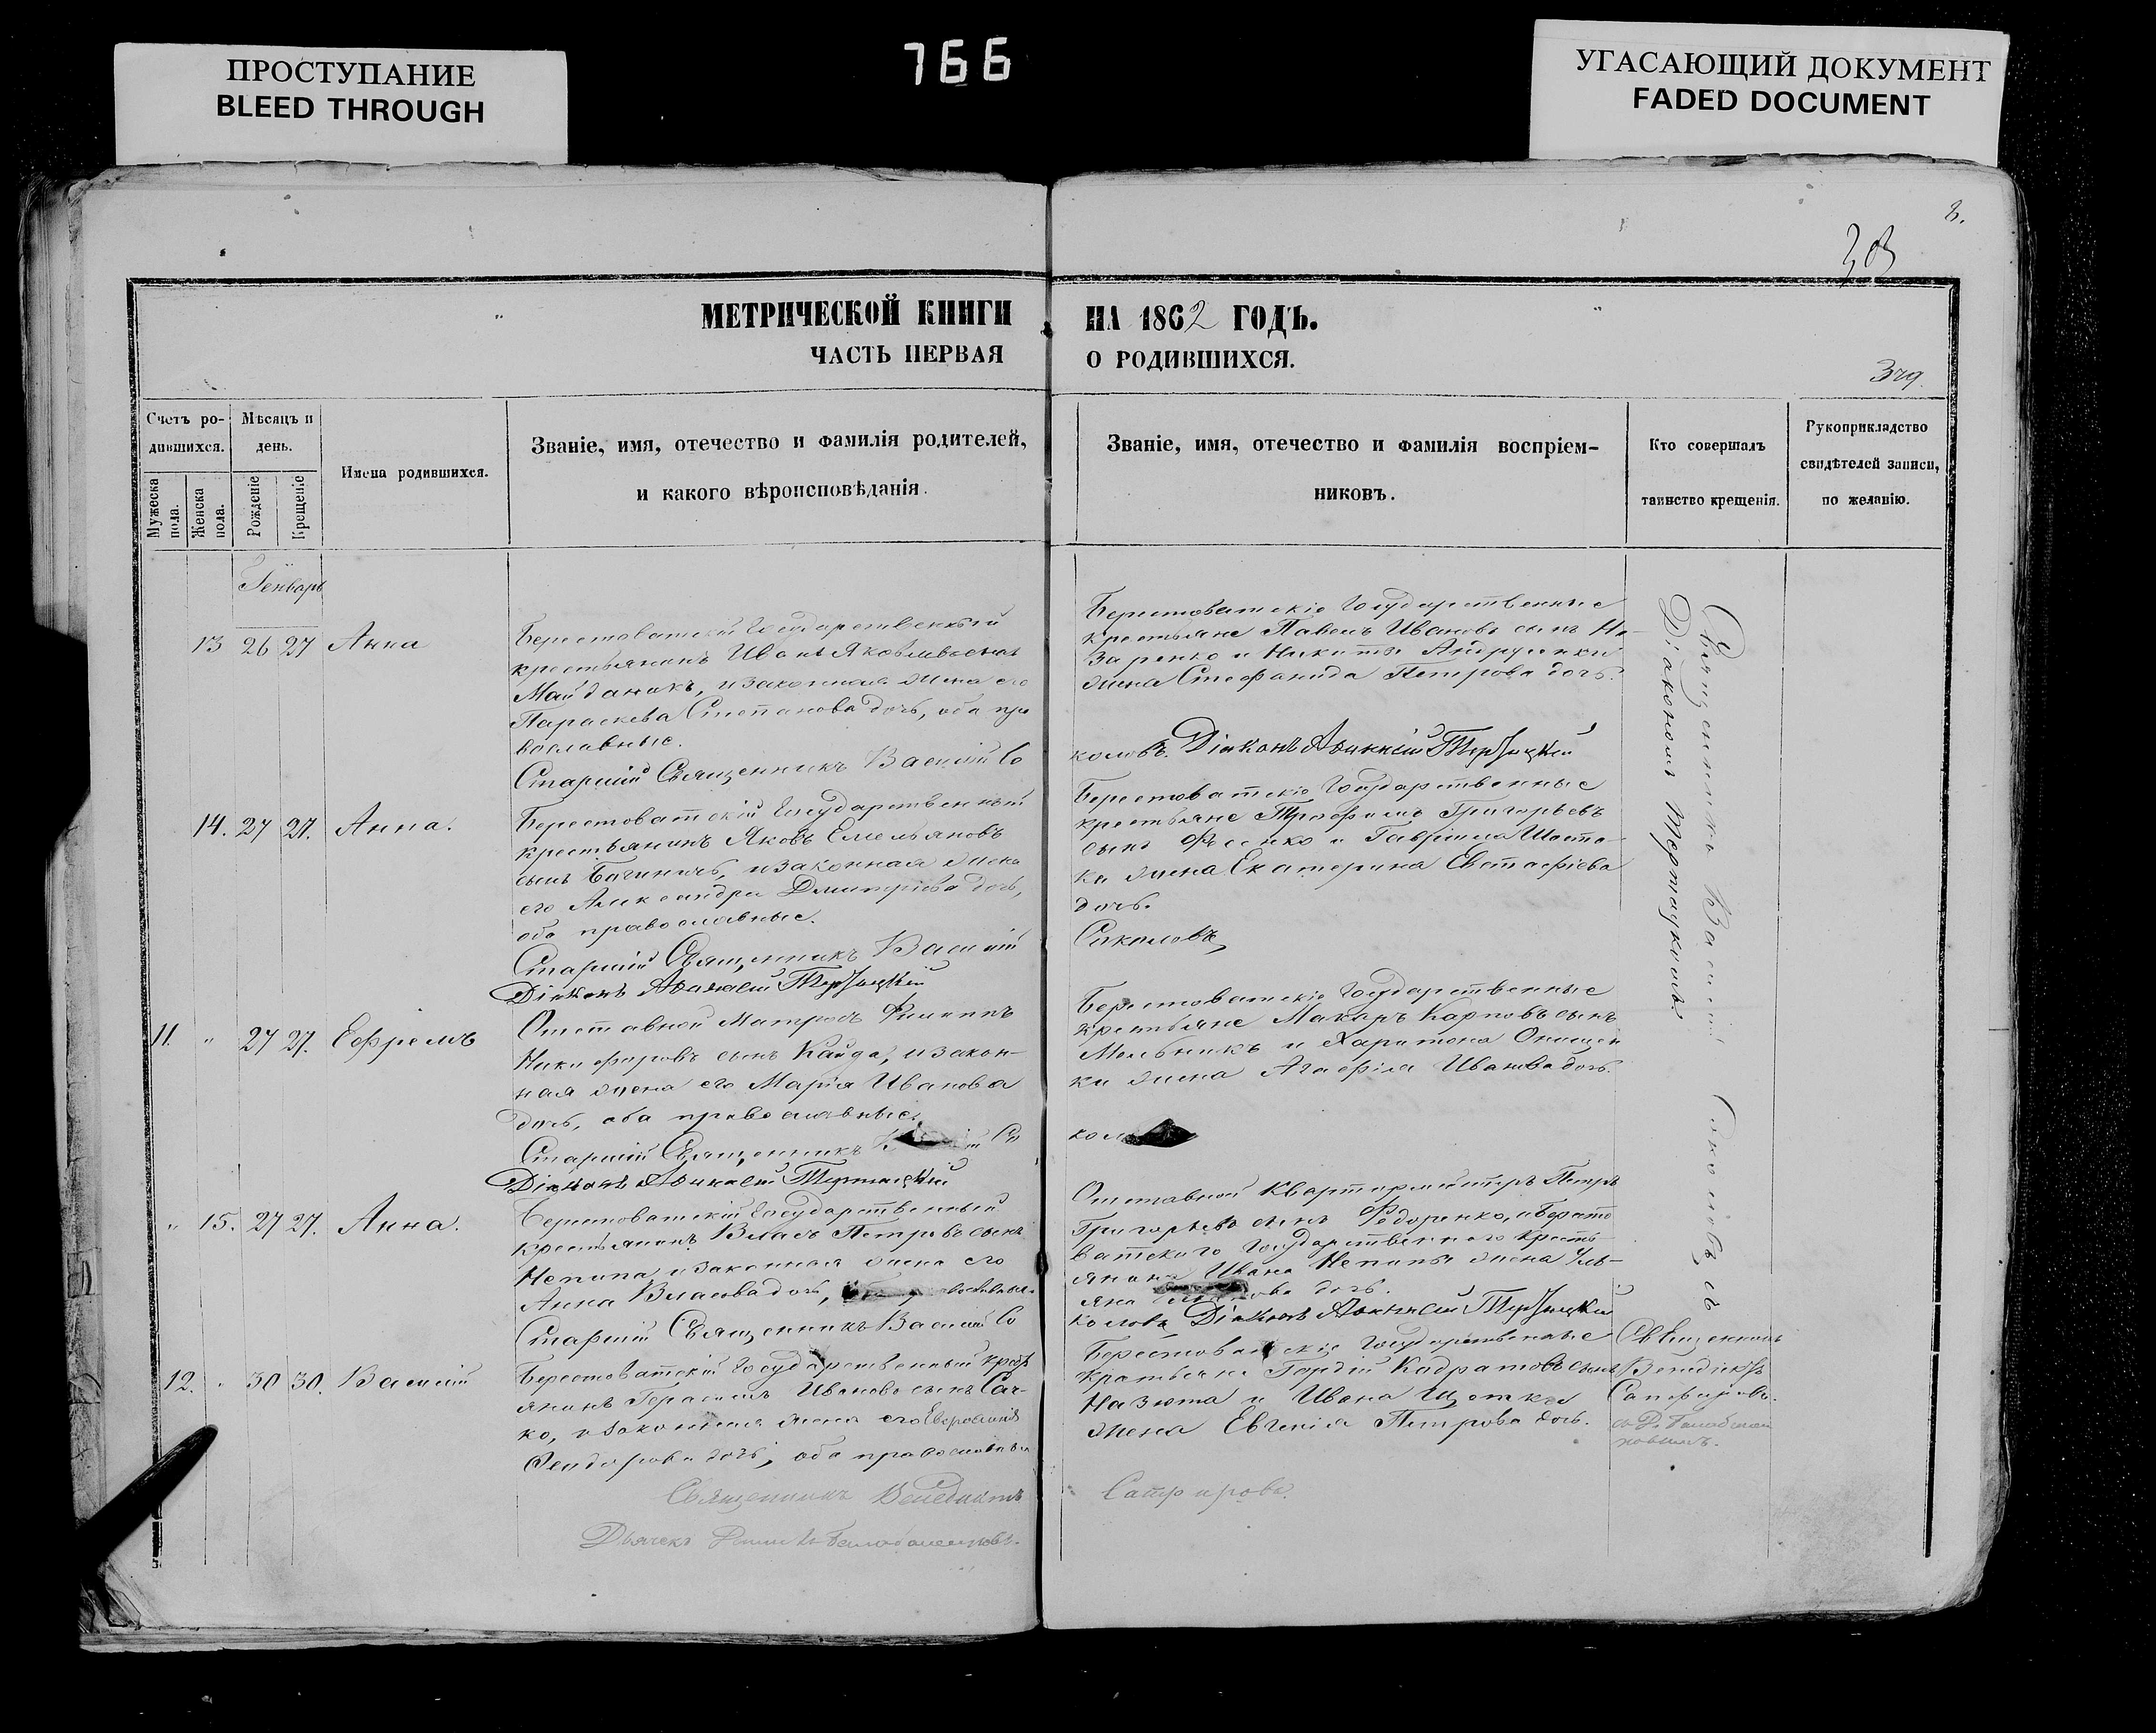 ПРОСТУПАНИЕ
BLEED THROUGH
766
УГАСАЮЩИЙ ДОКУМЕНТ
FADED DOCUMENT
8.
МЕТРИЧЕСКОЙ КНИГИ НА 1862 ГОДЪ.
ЧАСТЬ ПЕРВАЯ О РОДИВШИХСЯ.
Счетъ ро-
дившихся.
Мужеска пола.
Женска пола.
Мѣсяцъ и
день.
Рожденіе
Крещеніе
Имена родившихся.
Званіе, имя, отечество и фамилія родителей,
и какого вѣроисповѣданія.
Званіе, имя, отечество и фамилія воспріем-
никовъ.
Кто совершалъ
таинство крещенія.
Рукоприкладство
свидѣтелей записи,
по желанію.
Генварь
13 26 27 Анна
Берестоватскій Государственный
крестьянинъ Иванъ Яковлевъ сынъ
Майданикъ, и законная жена его
Параскева Степанова дочь, оба пра
вославные.
Старшій Священникъ Василій Со
Берестоватскіе Государственные
крестьяне Павелъ Ивановъ сынъ На-
заренко и Никиты Андрусенки
жена Стефанида Петрова дочь.
коловъ. Діаконъ
14. 27 27. Анна.
Берестоватскій Государственный
крестьянинъ Яковъ Емельяновъ
сынъ и законная жена
его Александра Дмитріева дочь,
оба православные.
Старшій Священникъ Василій
Діаконъ
Берестоватскіе Государственные
крестьяне Трофимъ Григорьевъ
сынъ Фесенко и Гавріила Шоста-
ка жена Екатерина Евстафіева
дочь.
Соколовъ,
11. " 27 27. Ефремъ
Отставной Матросъ Филиппъ
Никифоровъ сынъ Кайда, и закон-
ная жена его Марія Иванова
дочь, оба православные.
Старшій Священникъ Со
Діаконъ
Берестоватскіе Государственные
крестьяне Макаръ Карповъ сынъ
Мельникъ и Харитона Онищен
ки жена Агафія Иванова дочь.
кол
" 15. 27 27. Анна.
Берестоватскій Государственный
крестьянинъ Власъ Петровъ сынъ
Непипа, и законная жена его
Анна Власова дочь,
Старшій Священникъ Василій Со
Отставной Квартирмистръ Петръ
Григорьевъ сынъ Федоренко, и Бересто
ватского Государственного кресть-
янина Ивана Непипы жена Уль-
яна дочь.
коловъ Діаконъ
12. " 30 30. Василій
Берестоватскій Государственный крест
янинъ Герасимъ Ивановъ сынъ Сач-
ко, и законная жена его Евфросинія
дочь, оба православные
Священникъ Венедиктъ
Дьячекъ
Берестоватскіе Государственные
крестьяне Гордій Кодратовъ сынъ
Назюта и Ивана Щетки
жена Евгенія Петрова дочь.
Сапфировъ.
Священникъ Василій Соколовъ, съ
Діакономъ
Священникъ
Венедиктъ
Сапфировъ.